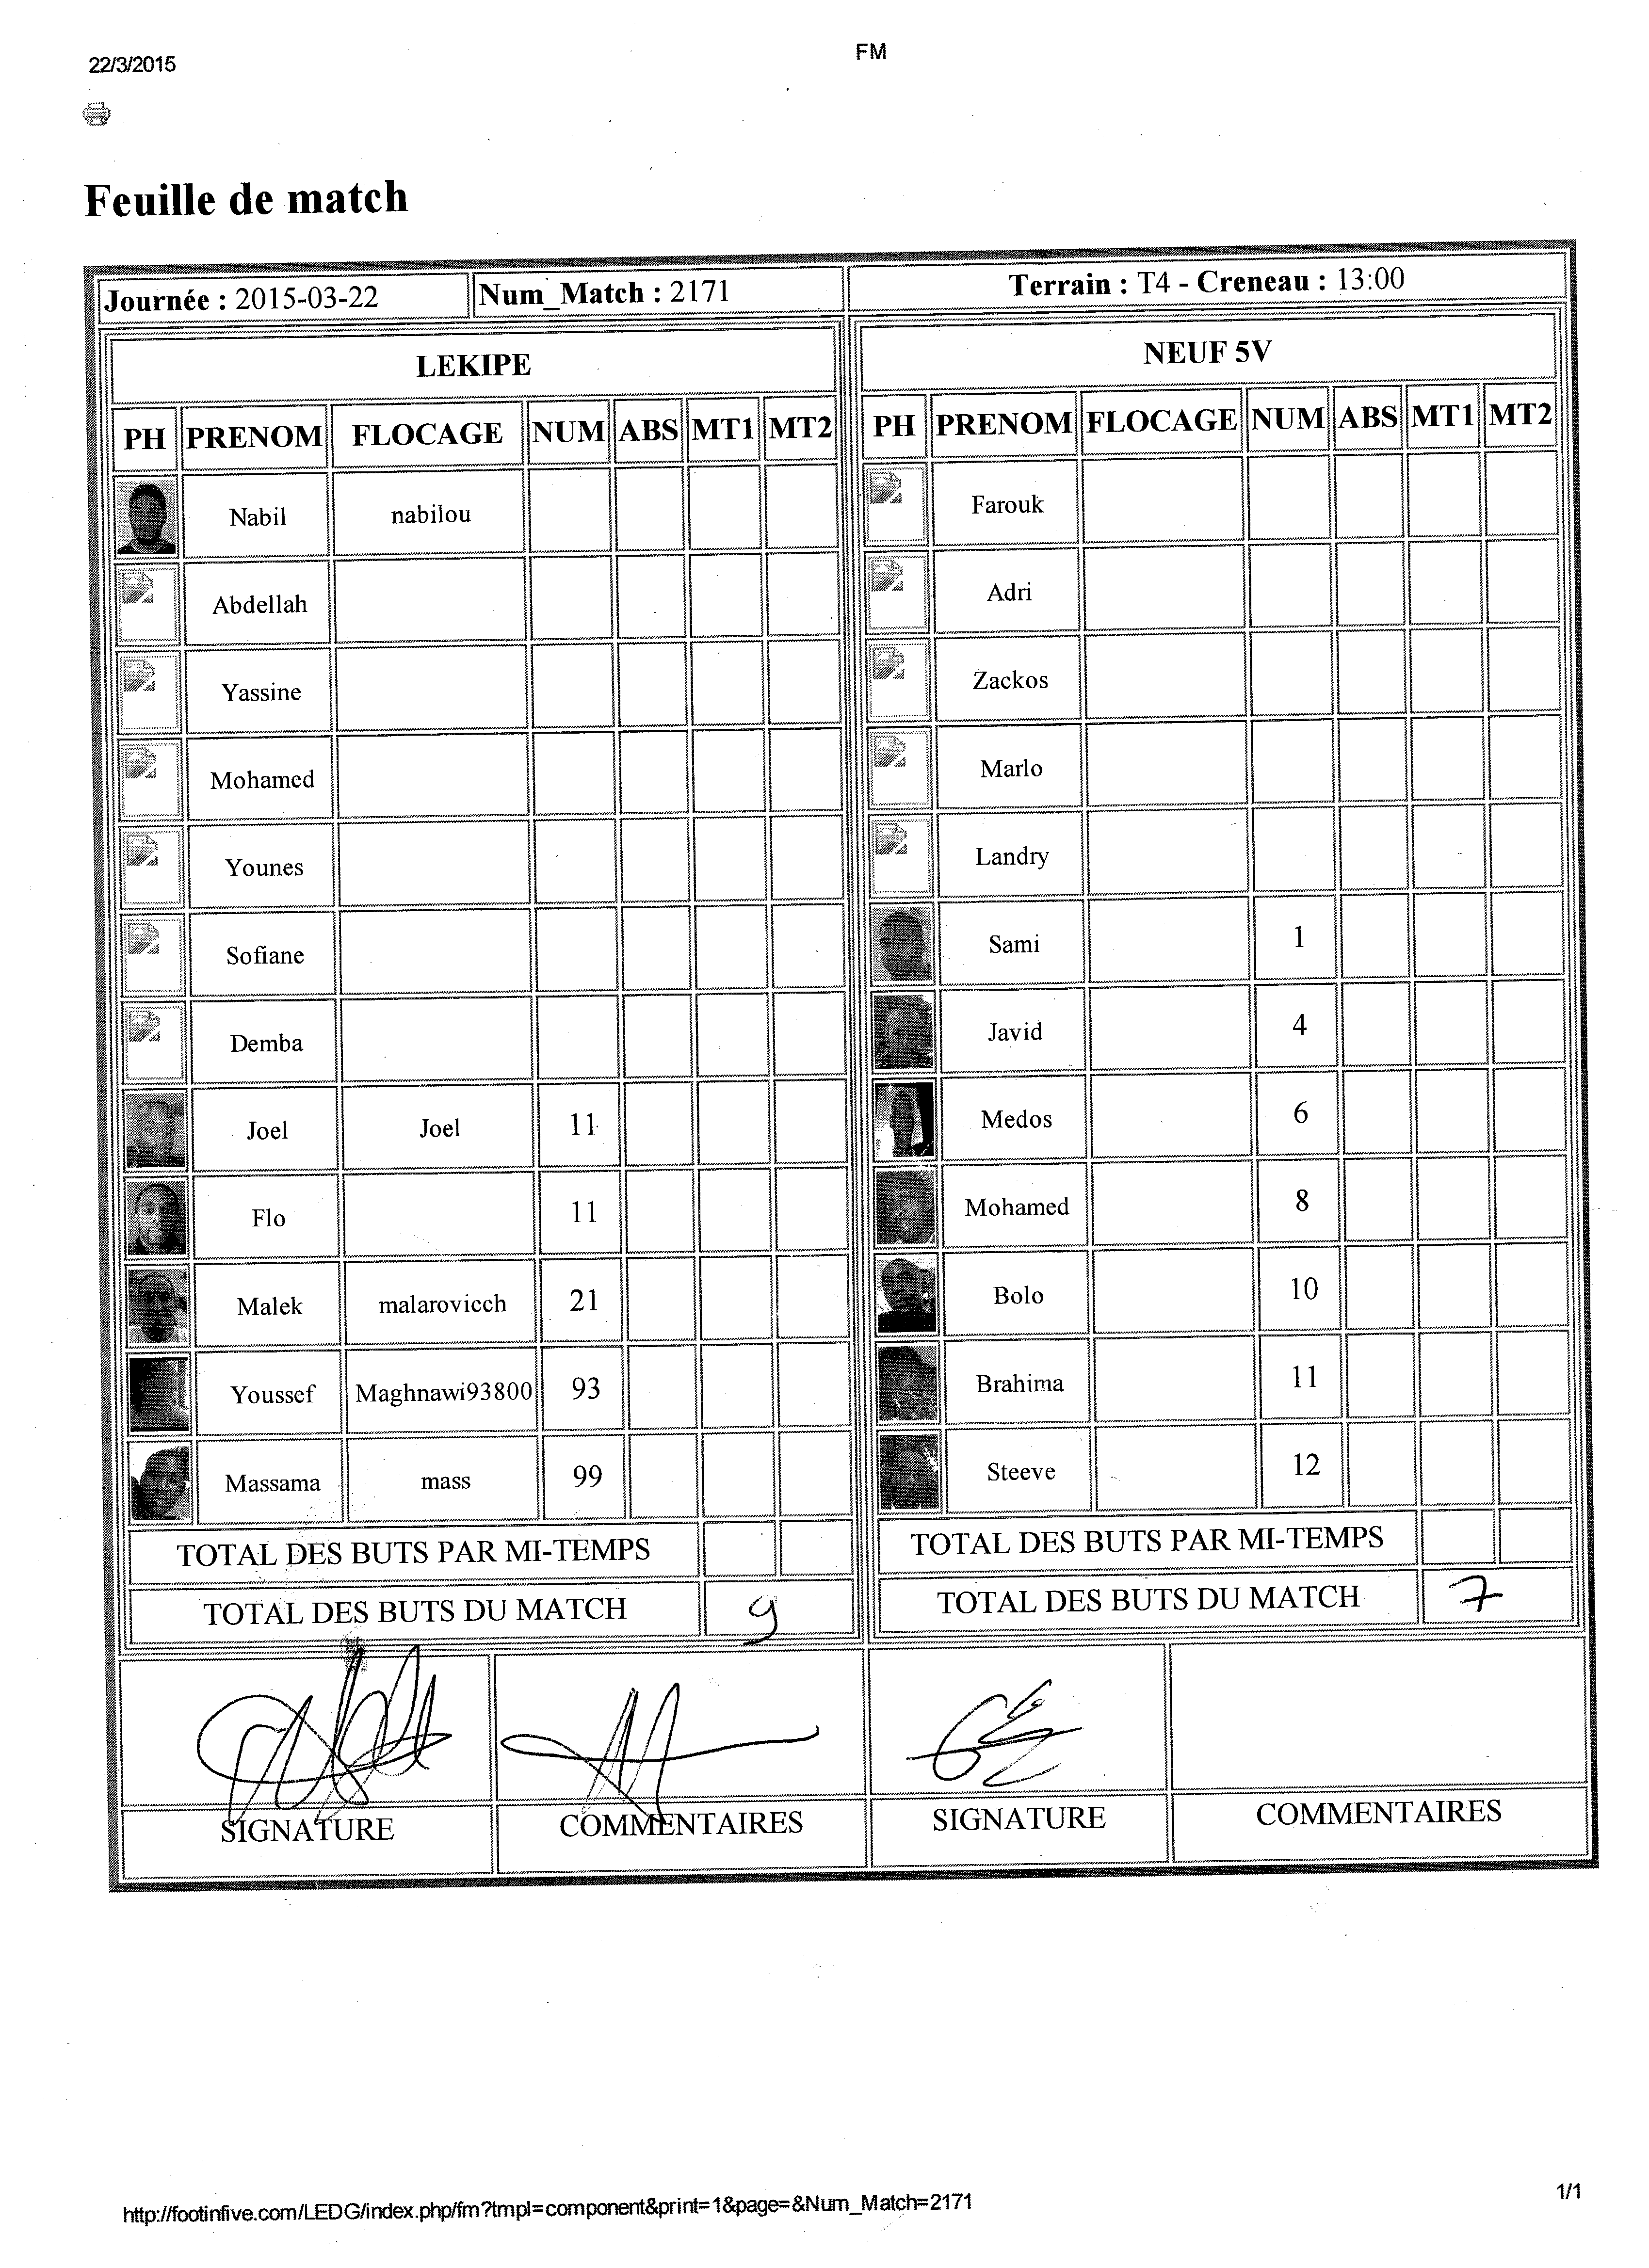 22/3/2015
FM
Feuille de match
Journée : 2015-03-22
Num_Match : 2171
Terrain : T4 - Creneau : 13:00
LEKIPE
PH PRENOM FLOCAGE NUM ABS MT1 MT2
Nabil nabilou
Abdellah
Yassine
Mohamed
Younes
Sofiane
Demba
Joel Joel 11
Flo 11
Malek malarovicch 21
Youssef Maghnawi93800 93
Massama mass 99
TOTAL DES BUTS PAR MI-TEMPS
TOTAL DES BUTS DU MATCH 9
NEUF 5V
PH PRENOM FLOCAGE NUM ABS MT1 MT2
Farouk
Adri
Zackos
Marlo
Landry
Sami 1
Javid 4
Medos 6
Mohamed 8
Bolo 10
Brahima 11
Steeve 12
TOTAL DES BUTS PAR MI-TEMPS
TOTAL DES BUTS DU MATCH 7
SIGNATURE
COMMENTAIRES
SIGNATURE
COMMENTAIRES
http://footinfive.com/LEDG/index.php/fm?tmpl=component&print=1&page=&Num_Match=2171
1/1